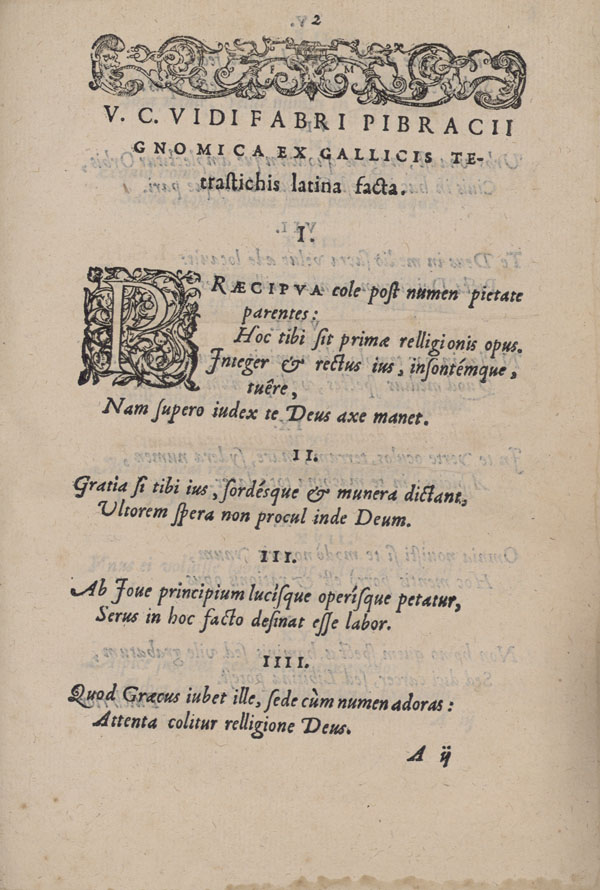 2
V. C. VIDI FABRI PIBRACII
GNOMICA EX GALLICIS TE-
traſtichis latina facta.
I.
PRÆCIPVA cole poſt numen pietate
parentes:
Hoc tibi ſit primæ relligionis opus.
Integer & rectus ius, inſontémque,
tuêre,
Nam ſupero iudex te Deus axe manet.
II.
Gratia ſi tibi ius, ſordéſque & munera dictant,
Vltorem ſpera non procul inde Deum.
III.
Ab Ioue principium lucíſque operíſque petatur,
Serus in hoc facto deſinat eſſe labor.
IIII.
Quod Græcus iubet ille, ſede cùm numen adoras:
Attenta colitur relligione Deus.
A ij